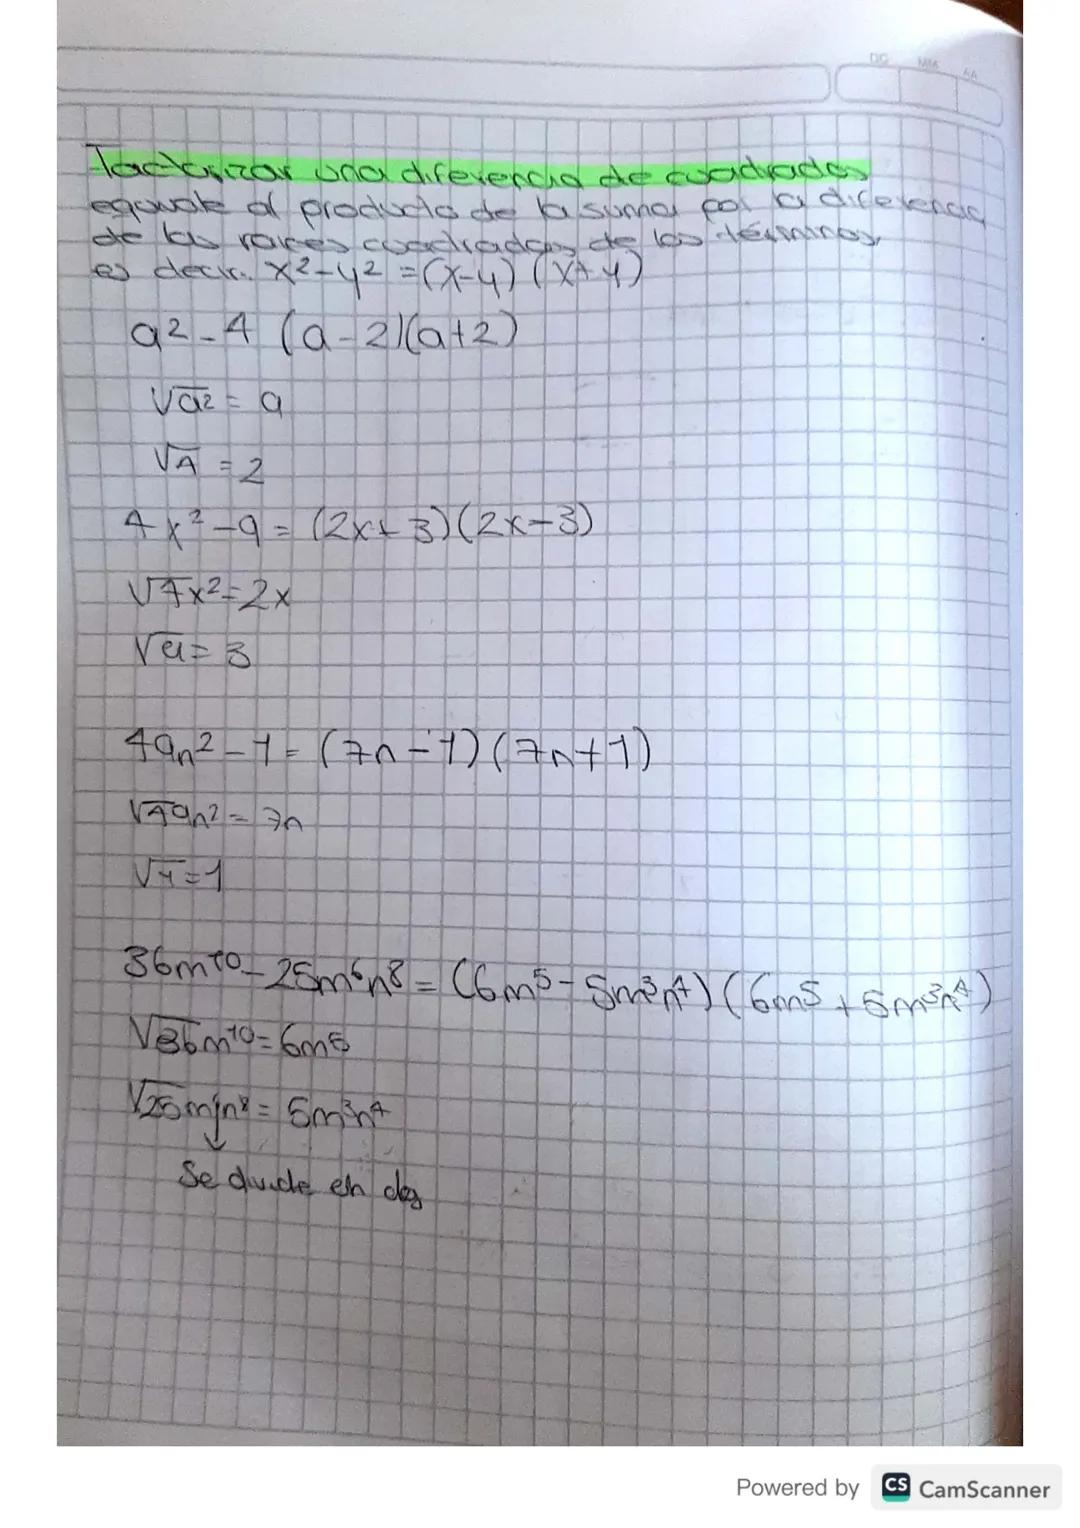 DD MM AA
Factorizar una diferencia de cuadrados
equivale al producto de la suma por la diferencia
de las raices cuadradas de los términos,
es decir: x²-y² = (x-y) (x+y)
a² - 4 (a-2)(a+2)
√a² = a
√4 = 2
4x² - 9 = (2x+3)(2x-3)
√4x² = 2x
√9 = 3
49n² - 1 = (7n-1)(7n+1)
√49n² = 7n
√1 = 1
36m¹⁰ - 25m⁶n⁸ = (6m⁵ - 5m³n⁴)(6m⁵ + 5m³n⁴)
√36m¹⁰ = 6m⁵
√25m⁶n⁸ = 5m³n⁴
↓
Se divide en dos
Powered by CS CamScanner